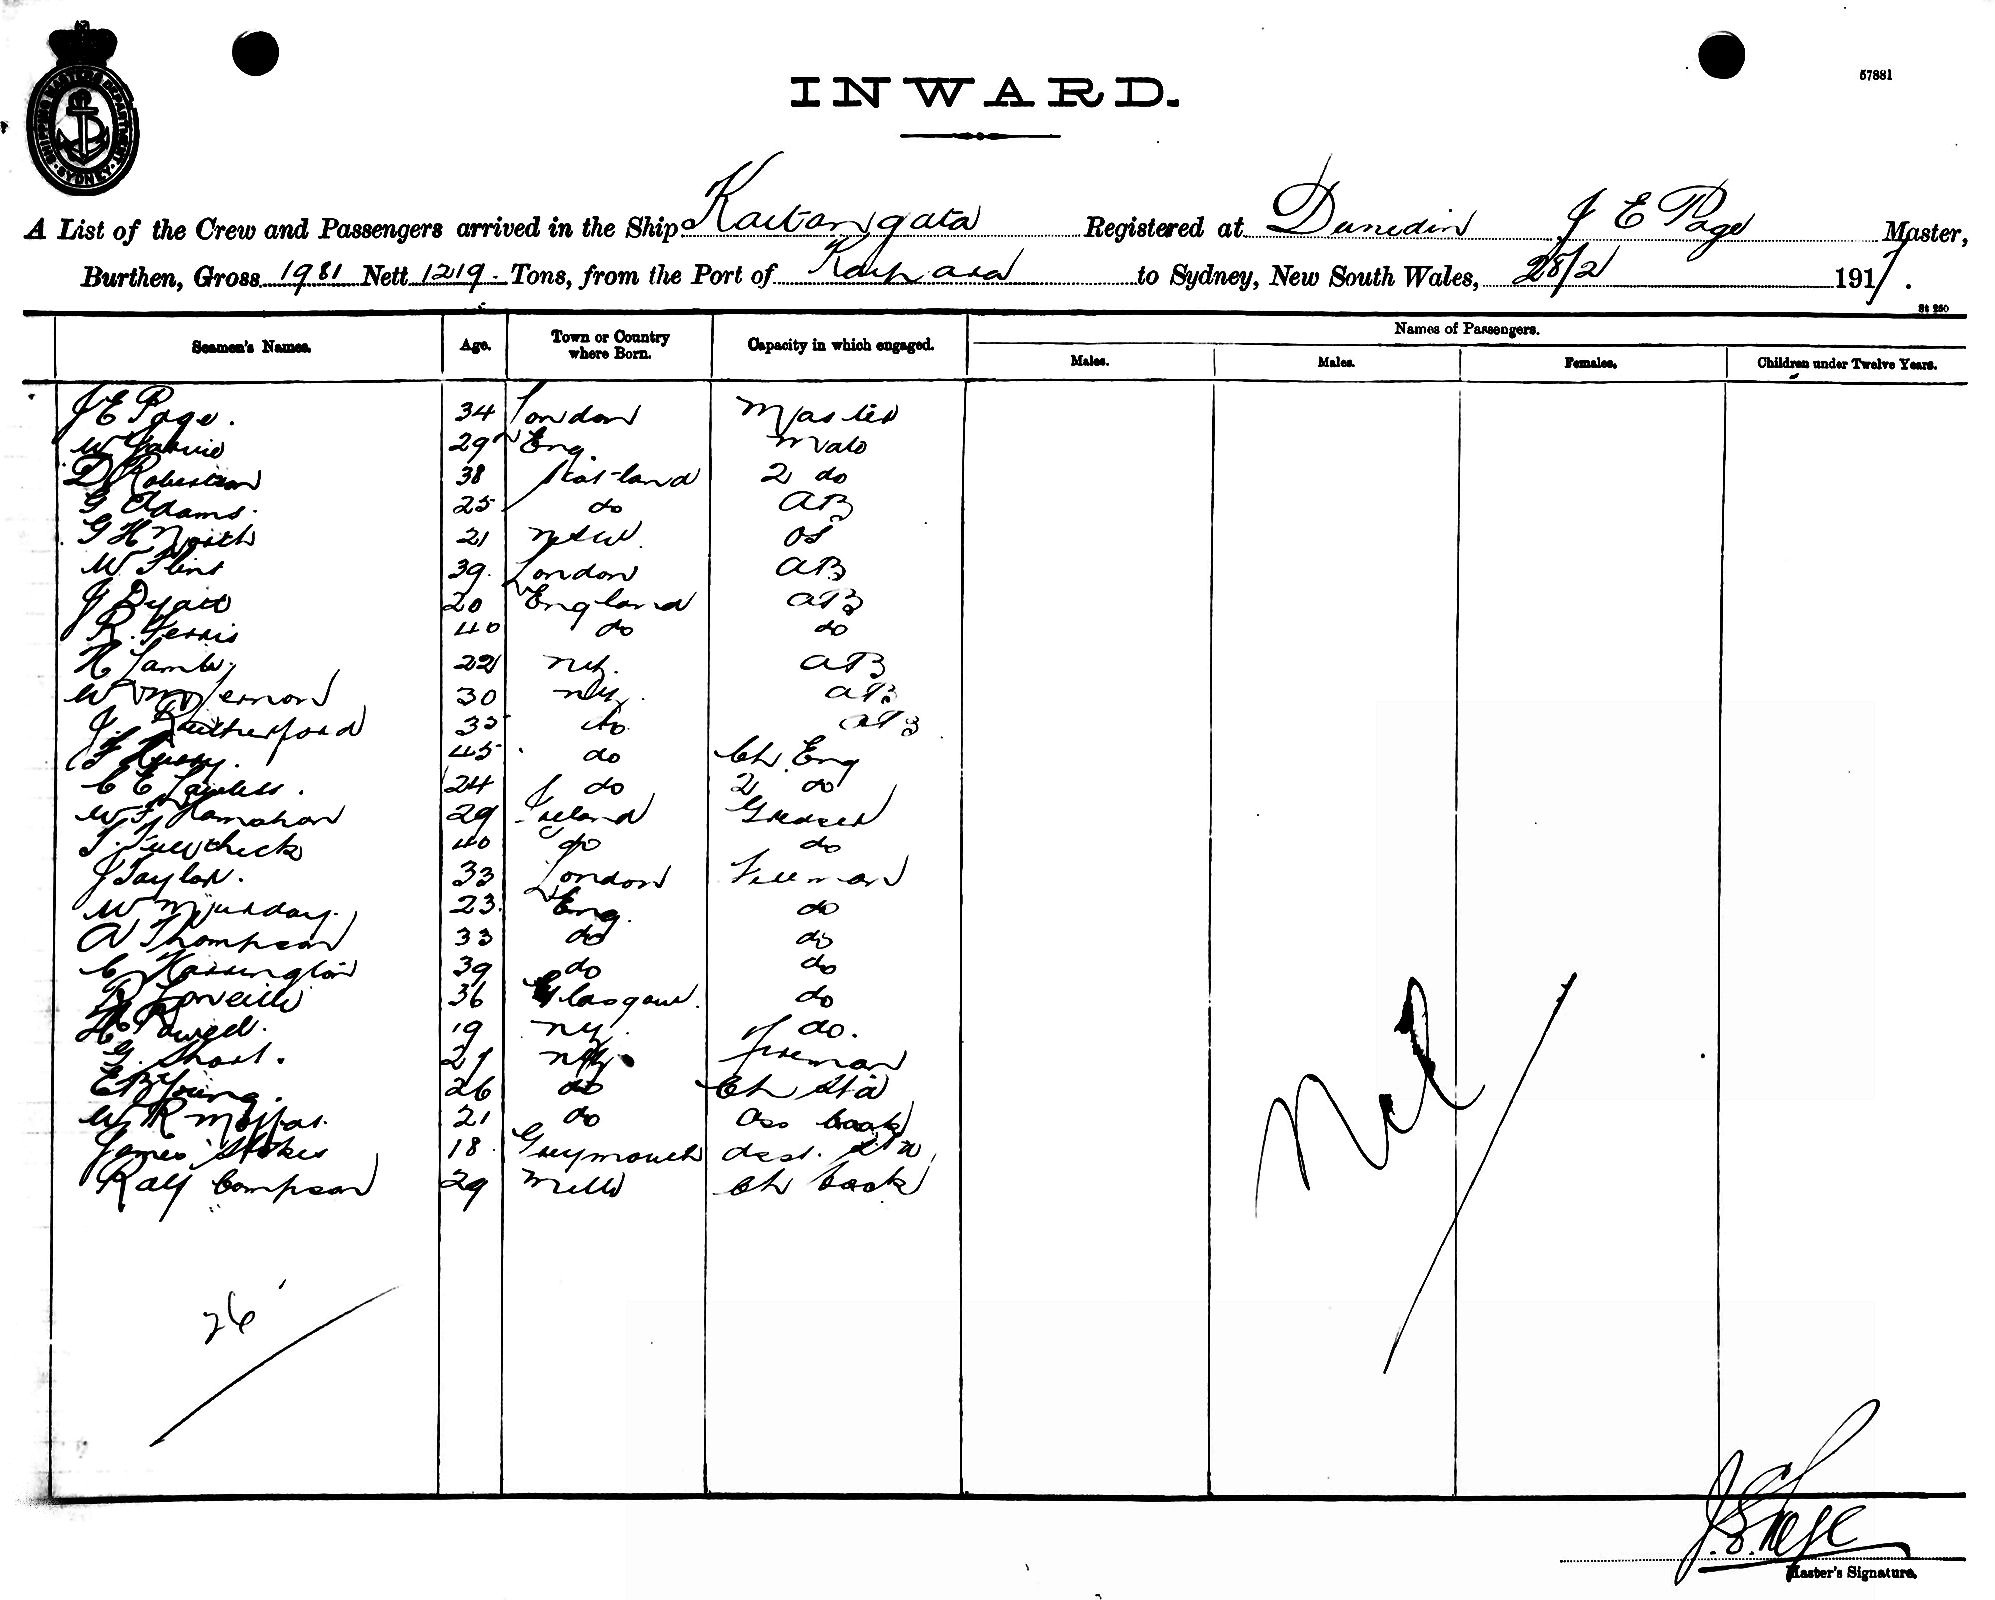 SHIPPING MASTERS DEPARTMENT SYDNEY
57881
INWARD.
A List of the Crew and Passengers arrived in the Ship Kaitangata Registered at Dunedin J E Page Master,
Burthen, Gross 1981 Nett 1219 Tons, from the Port of Kaipara to Sydney, New South Wales, 28/2 1917.
St 250
Seamen's Names. Age. Town or Country where Born. Capacity in which engaged. Names of Passengers.
Males. Males. Females. Children under Twelve Years.
J E Page. 34 London Master
W 29 Eng. Mate
D Robertson 38 Scotland 2 do
G Adams. 25 do AB
G H North 21 NSW. OS
W Flint 39. London AB
J Dyatt 20 England AB
R. Ferris 40 do do
H Lamb 22 NZ. AB
W 30 NZ. AB
J. Rutherford 35 do AB
F 45 do Ch. Eng
C E Lawless. 24 do 2 do
W F 29 Ireland Greaser
T. 40 do do
J Taylor. 33 London Fireman
W Murday. 23. Eng. do
A Thompson 33 do do
C Harrington 39 do do
36 Glasgow. do
H Powell. 19 NZ. do.
G. Short. 27 NZ fireman
E B Young. 26 do Ch Std
W R Moffat. 21 do Ass Cook
James Stokes 18. Greymouth Asst. Std
Ralf Compson 29 Melb Ch Cook
26
Nil
J. E. Page
Master's Signature.